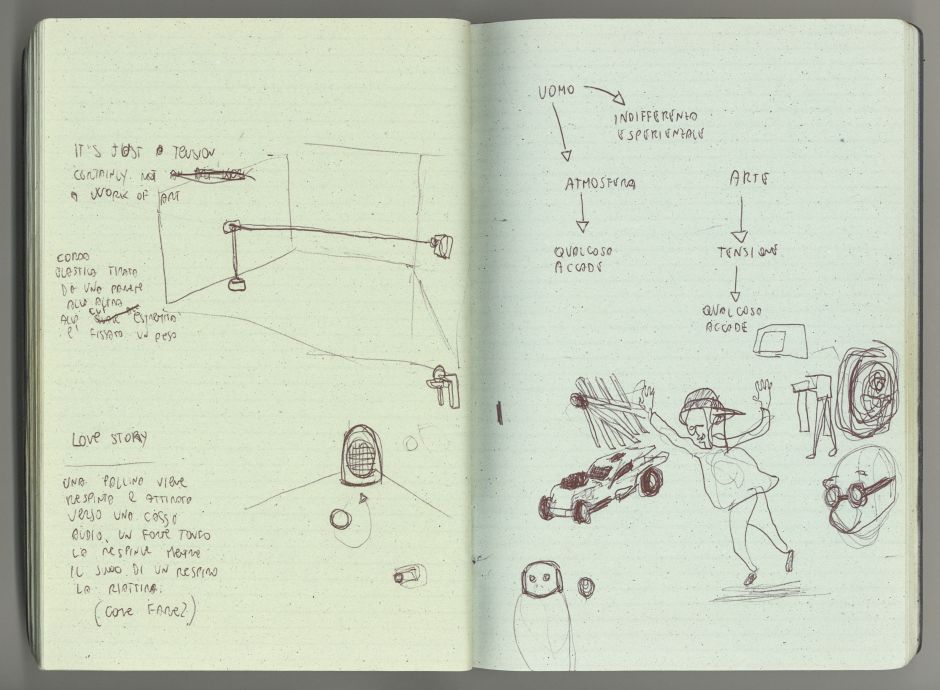 IT'S JUST A TENSION
CERTAINLY NOT
A WORK OF ART
CORDA
ELASTICA TIRATA
DA UNA PARETE
ALL'ALTRA
ALLA ESTREMITÀ
È FISSATO UN PESO
LOVE STORY
UNA PALLINA VIENE
RESPINTA E ATTIRATA
VERSO UNA CASSA
AUDIO, UN FORTE TONFO
LA RESPINGE MENTRE
IL SUONO DI UN RESPIRO
LA RIATTIRA.
(COME FARE?)
UOMO
INDIFFERENTE
ESPERIENZIALE
ATMOSFERA
QUALCOSA
ACCADE
ARTE
TENSIONE
QUALCOSA
ACCADE